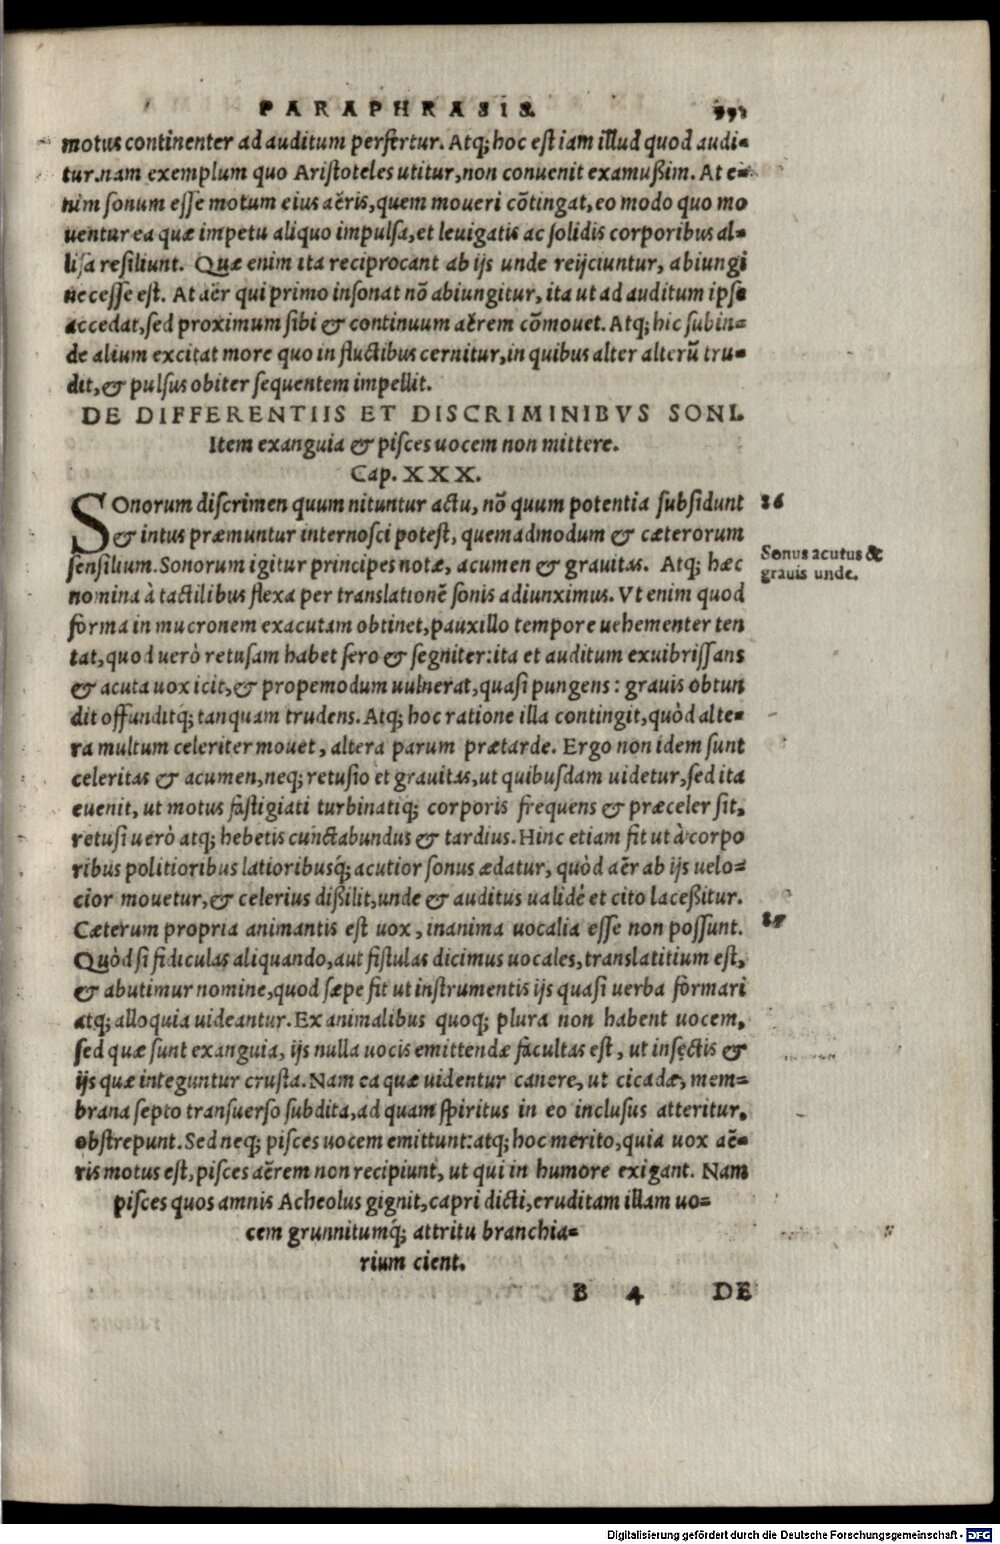 PARAPHRASIS.
motus continenter ad auditum perfertur. Atq; hoc est iam illud quod audi-
tur. nam exemplum quo Aristoteles utitur, non conuenit examußim. At e-
nim sonum esse motum eius aëris, quem moueri cōtingat, eo modo quo mo
uentur ea quæ impetu aliquo impulsa, et leuigatis ac solidis corporibus al-
lisa resiliunt. Quæ enim ita reciprocant ab ijs unde reijciuntur, abiungi
necesse est. At aër qui primo insonat nō abiungitur, ita ut ad auditum ipse
accedat, sed proximum sibi & continuum aërem cōmouet. Atq; hic subin-
de alium excitat more quo in fluctibus cernitur, in quibus alter alterū tru-
dit, & pulsus obiter sequentem impellit.
DE DIFFERENTIIS ET DISCRIMINIBVS SONI.
Item exanguia & pisces uocem non mittere.
Cap. XXX.
SOnorum discrimen quum nituntur actu, nō quum potentia subsidunt 36
& intus præmuntur internosci potest, quemadmodum & cæterorum
sensilium. Sonorum igitur principes notæ, acumen & grauitas. Atq; hæc
Sonus acutus &
grauis unde.
nomina à tactilibus flexa per translationē sonis adiunximus. Vt enim quod
forma in mucronem exacutam obtinet, pauxillo tempore uehementer ten
tat, quod uerò retusam habet sero & segniter: ita et auditum exuibrissans
& acuta uox icit, & propemodum uulnerat, quasi pungens: grauis obtun
dit offunditq; tanquam trudens. Atq; hoc ratione illa contingit, quòd alte-
ra multum celeriter mouet, altera parum prætarde. Ergo non idem sunt
celeritas & acumen, neq; retusio et grauitas, ut quibusdam uidetur, sed ita
euenit, ut motus fastigiati turbinatiq; corporis frequens & præceler sit,
retusi uerò atq; hebetis cunctabundus & tardius. Hinc etiam fit ut à corpo
ribus politioribus latioribusq́; acutior sonus ædatur, quòd aër ab ijs uelo-
cior mouetur, & celerius dißilit, unde & auditus ualidè et cito laceßitur.
Cæterum propria animantis est uox, inanima uocalia esse non possunt.
Quòd si fidiculas aliquando, aut fistulas dicimus uocales, translatitium est,
& abutimur nomine, quod sæpe fit ut instrumentis ijs quasi uerba formari
atq; alloquia uideantur. Ex animalibus quoq; plura non habent uocem,
sed quæ sunt exanguia, ijs nulla uocis emittendæ facultas est, ut insectis &
ijs quæ integuntur crusta. Nam ea quæ uidentur canere, ut cicadæ, mem-
brana septo transuerso subdita, ad quam spiritus in eo inclusus atteritur,
obstrepunt. Sed neq; pisces uocem emittunt: atq; hoc merito, quia uox aë-
ris motus est, pisces aërem non recipiunt, ut qui in humore exigant. Nam
pisces quos amnis Acheolus gignit, capri dicti, eruditam illam uo-
cem grunnitumq́; attritu branchia-
rium cient.
B 4 DE
Digitalisierung gefördert durch die Deutsche Forschungsgemeinschaft - DFG